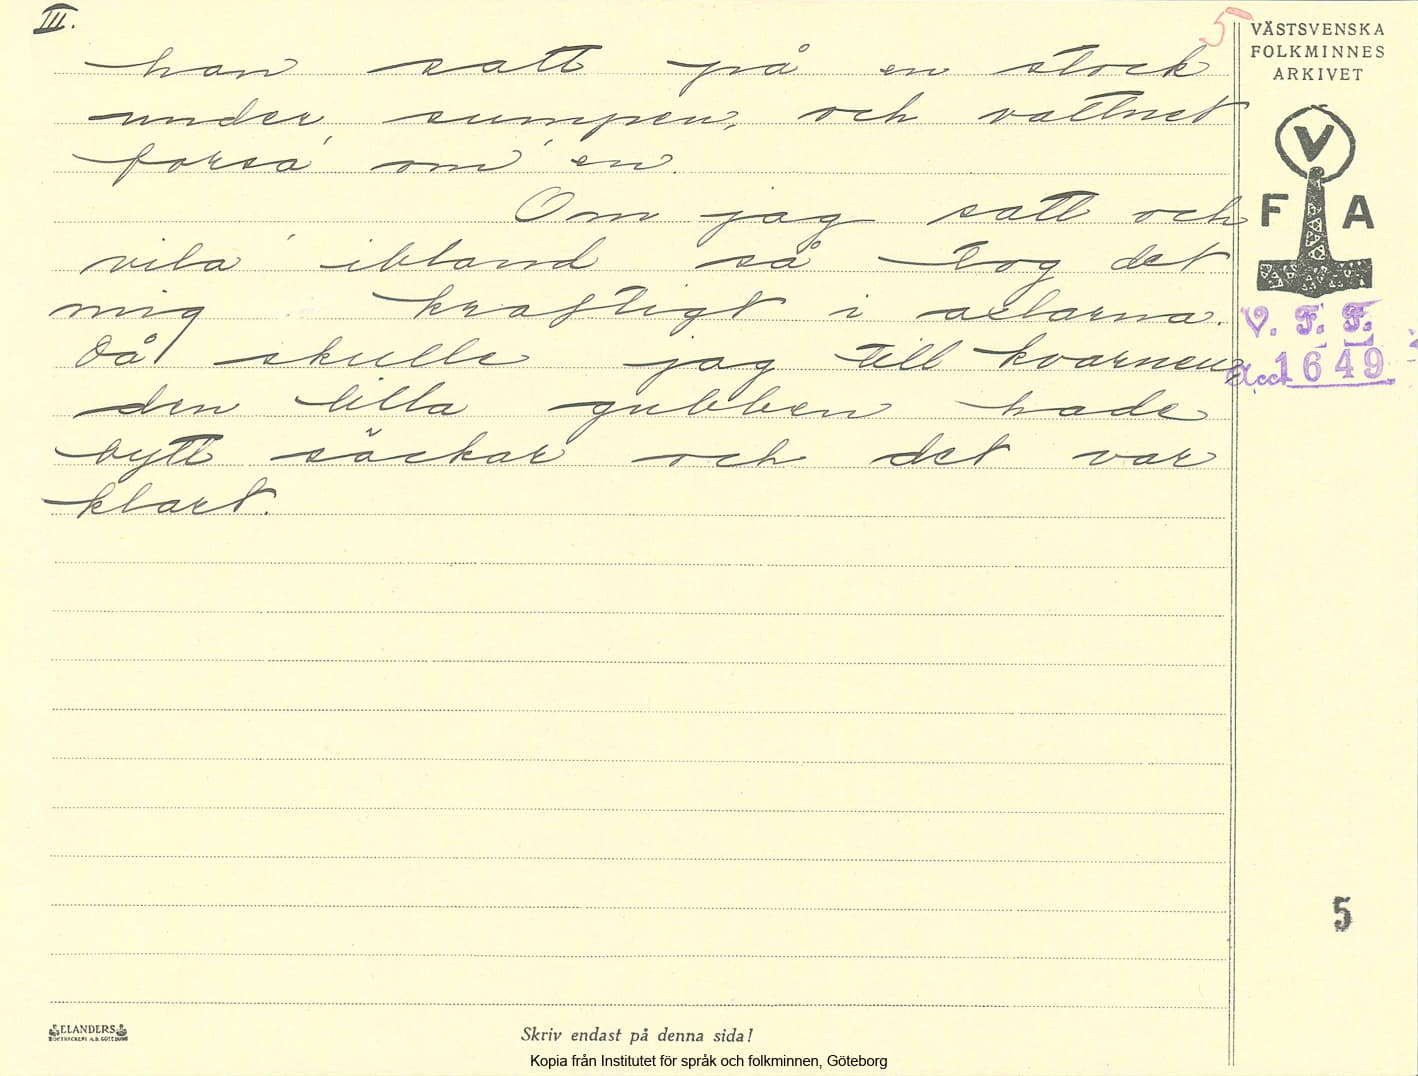 III.
5
han satt på en stock
under sumpen, och vattnet
forsa' om 'en.
Om jag satt och
vila' ibland så tog det
mig kraftigt i axlarna.
Då skulle jag till kvarnen,
den lilla gubben hade
bytt säckar och det var
klart.
VÄSTSVENSKA
FOLKMINNES
ARKIVET
V
F A
V. F. F.
Acc. 1649
5
ELANDERS
BOKTRYCKERI A.B. GÖTEBORG
Skriv endast på denna sida!
Kopia från Institutet för språk och folkminnen, Göteborg